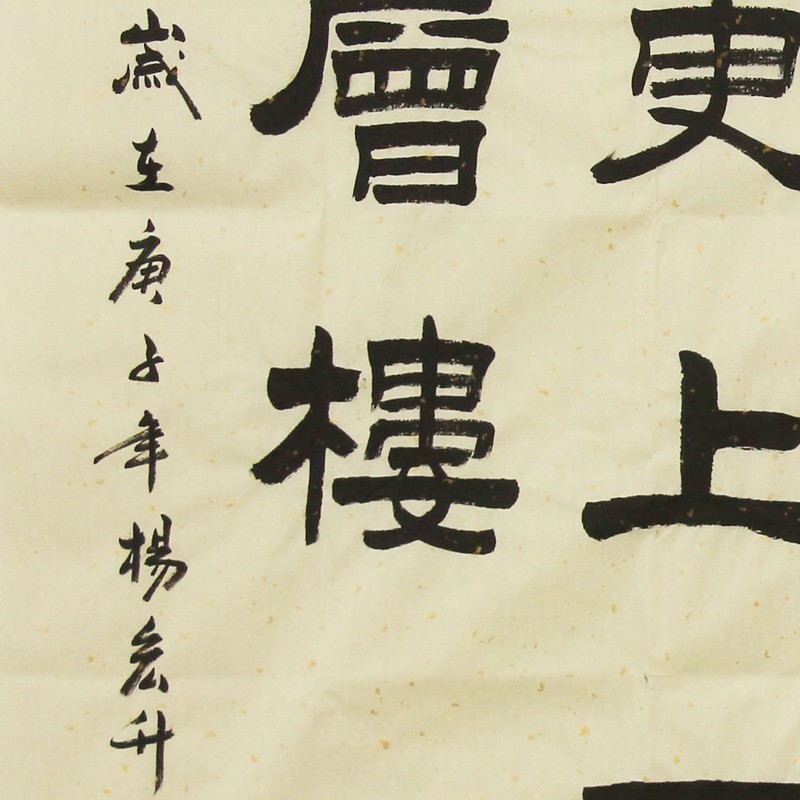 更上
層樓
歲在庚子年楊宏升